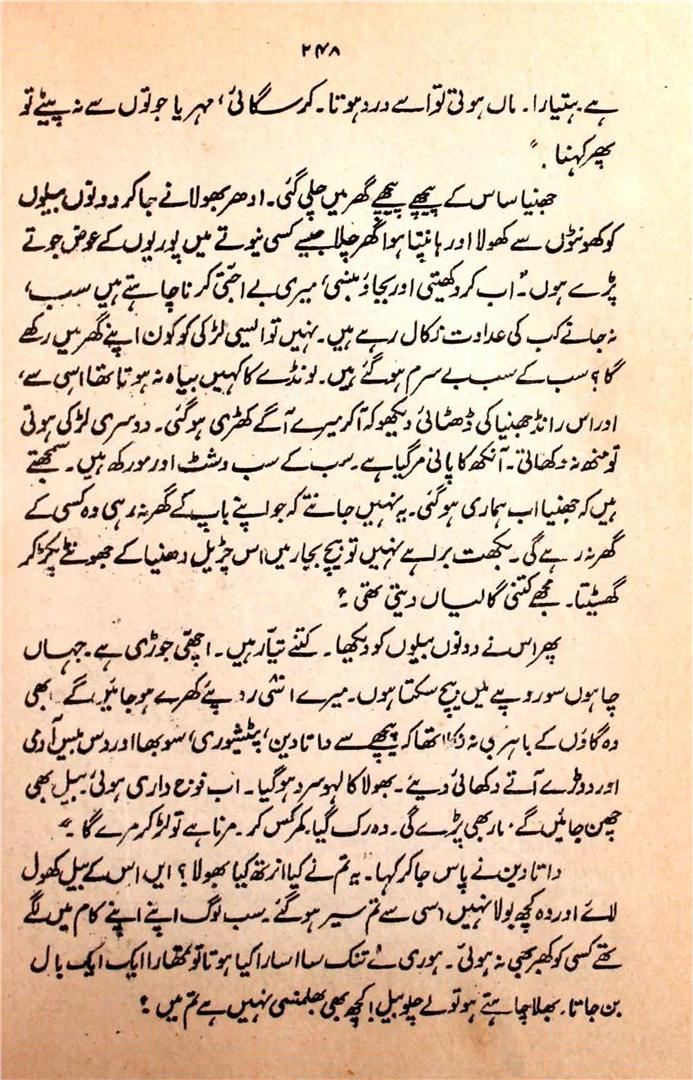 ۲۴۸
ہے ہتیارا۔ ماں ہوتی تو اسے درد ہوتا۔ کر سگائی، مہریا جوتوں سے نہ پیٹے تو
پھر کہنا۔"
جھنیا ساس کے پیچھے پیچھے گھر میں چلی گئی۔ ادھر بھولا نے جا کر دونوں بیلوں
کو کھونٹوں سے کھولا اور ہانپتا ہوا گھر چلا جیسے کسی نیوتے میں پوریوں کے عوض جوتے
پڑے ہوں۔ "اب کر دکھیتی اور بجاؤ بنسی، میری بے اجتی کرنا چاہتے ہیں سب،
نہ جانے کب کی عداوت نکال رہے ہیں۔ نہیں تو ایسی لڑکی کو کون اپنے گھر میں رکھے
گا؟ سب کے سب بے سرم ہو گئے ہیں۔ لونڈے کا کہیں بیاہ نہ ہوتا تھا اسی سے،
اور اس رانڈ جھنیا کی ڈھٹائی دیکھو کہ آ کر میرے آگے کھڑی ہو گئی۔ دوسری لڑکی ہوتی
تو منھ نہ دکھاتی۔ آنکھ کا پانی مر گیا ہے۔ سب کے سب دشٹ اور مورکھ ہیں۔ سمجھتے
ہیں کہ جھنیا اب ہماری ہو گئی۔ یہ نہیں جانتے کہ جو اپنے باپ کے گھر نہ رہی وہ کسی کے
گھر نہ رہے گی۔ بکھت برا ہے نہیں تو بیچ بجار میں اس چڑیل دھنیا کے جھونٹے پکڑ کر
گھسیٹتا۔ مجھے کتنی گالیاں دیتی تھی۔"
پھر اس نے دونوں بیلوں کو دیکھا۔ کتنے تیار ہیں۔ اچھی جوڑی ہے۔ جہاں
چاہوں سو روپے میں بیچ سکتا ہوں۔ میرے اسّی روپئے کھرے ہو جائیں گے۔ ابھی
وہ گاؤں کے باہر بھی نہ نکلا تھا کہ پیچھے سے داتا دین، پٹیشوری، سوبھا اور دس بیس آدمی
اور دوڑے آتے دکھائی دیئے۔ بھولا کا لہو سرد ہو گیا۔ اب فوزداری ہوئی، بیل بھی
چھن جائیں گے، مار بھی پڑے گی۔ وہ رک گیا۔ کمر کس کر۔ مرنا ہے تو لڑ کر مرے گا۔"
داتا دین نے پاس جا کر کہا۔ "یہ تم نے کیا انرتھ کیا بھولا؟ ایں اس کے بیل کھول
لائے اور وہ کچھ بولا نہیں اسی سے تم سیر ہو گئے۔ سب لوگ اپنے اپنے کام میں لگے
تھے کسی کو کھبر بھی نہ ہوئی۔ ہوری نے تنک سا اسارا کیا ہوتا تو تمھارا ایک ایک بال
بن جاتا۔ بھلا چاہتے ہو تو لے چلو بیل! کچھ بھی بھلمنسی نہیں ہے تم میں؟